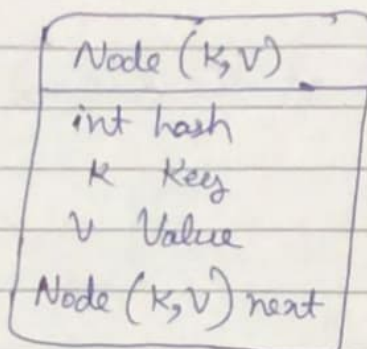 Node (K,V)
int hash
K Key
V Value
Node (K,V) next